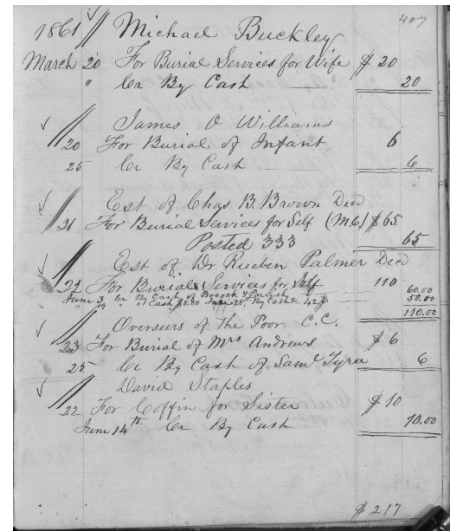 407
1861 // Michael Buckley
March 20 For Burial Services for Wife $ 20
" Cr By Cash 20
James O Williams
20 For Burial of Infant 6
25 Cr By Cash 6
Est of Chas B. Brown Decd
21 For Burial Services for Self (M.C.) $ 65
Posted 333 65
Est of Dr Rueben Palmer Decd
21 For Burial Services for Self 110 60.00
June 3 Cr By Cash of 50.00
" Cash 110.00
Overseers of the Poor C.C.
23 For Burial of Mrs Andrews $ 6
25 Cr By Cash of Saml Tyra 6
David Staples
22 For Coffin for Sister $ 10
June 14th Cr By Cash 10.00
$ 217